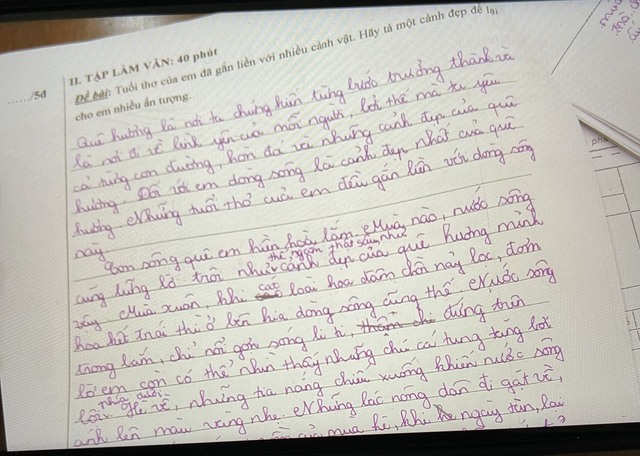 II. TẬP LÀM VĂN: 40 phút
....../5đ
Đề bài: Tuổi thơ của em đã gắn liền với nhiều cảnh vật. Hãy tả một cảnh đẹp để lại
cho em nhiều ấn tượng.
Quê hương là nơi ta chứng kiến từng bước trưởng thành và
là nơi đi về bình yên của mỗi người, bởi thế mà ta yêu
cả từng con đường, hòn đá và những cảnh đẹp của quê
hương. Đối với em dòng sông là cảnh đẹp nhất của quê
hương. Những tuổi thơ của em đều gắn liền với dòng sông
này.
Con sông quê em hiền hoà lắm. Mùa nào, nước sông
cũng lững lờ trôi như cảnh đẹp của quê hương mình
vậy. Mùa xuân, khi các loài hoa đâm chồi nảy lộc, đơm
hoa kết trái thì ở bên kia dòng sông cũng thế. Nước sông
trong lắm, chỉ nổi gợn sóng li ti, thậm chí đứng trên
bờ em còn có thể nhìn thấy những chú cá tung tăng bơi
lội phía dưới. Hè về, những tia nắng chiếu xuống khiến nước sông
ánh lên màu vàng nhẹ. Những bác nông dân đi gặt về,
của mùa hè, khi ngày tàn, lại